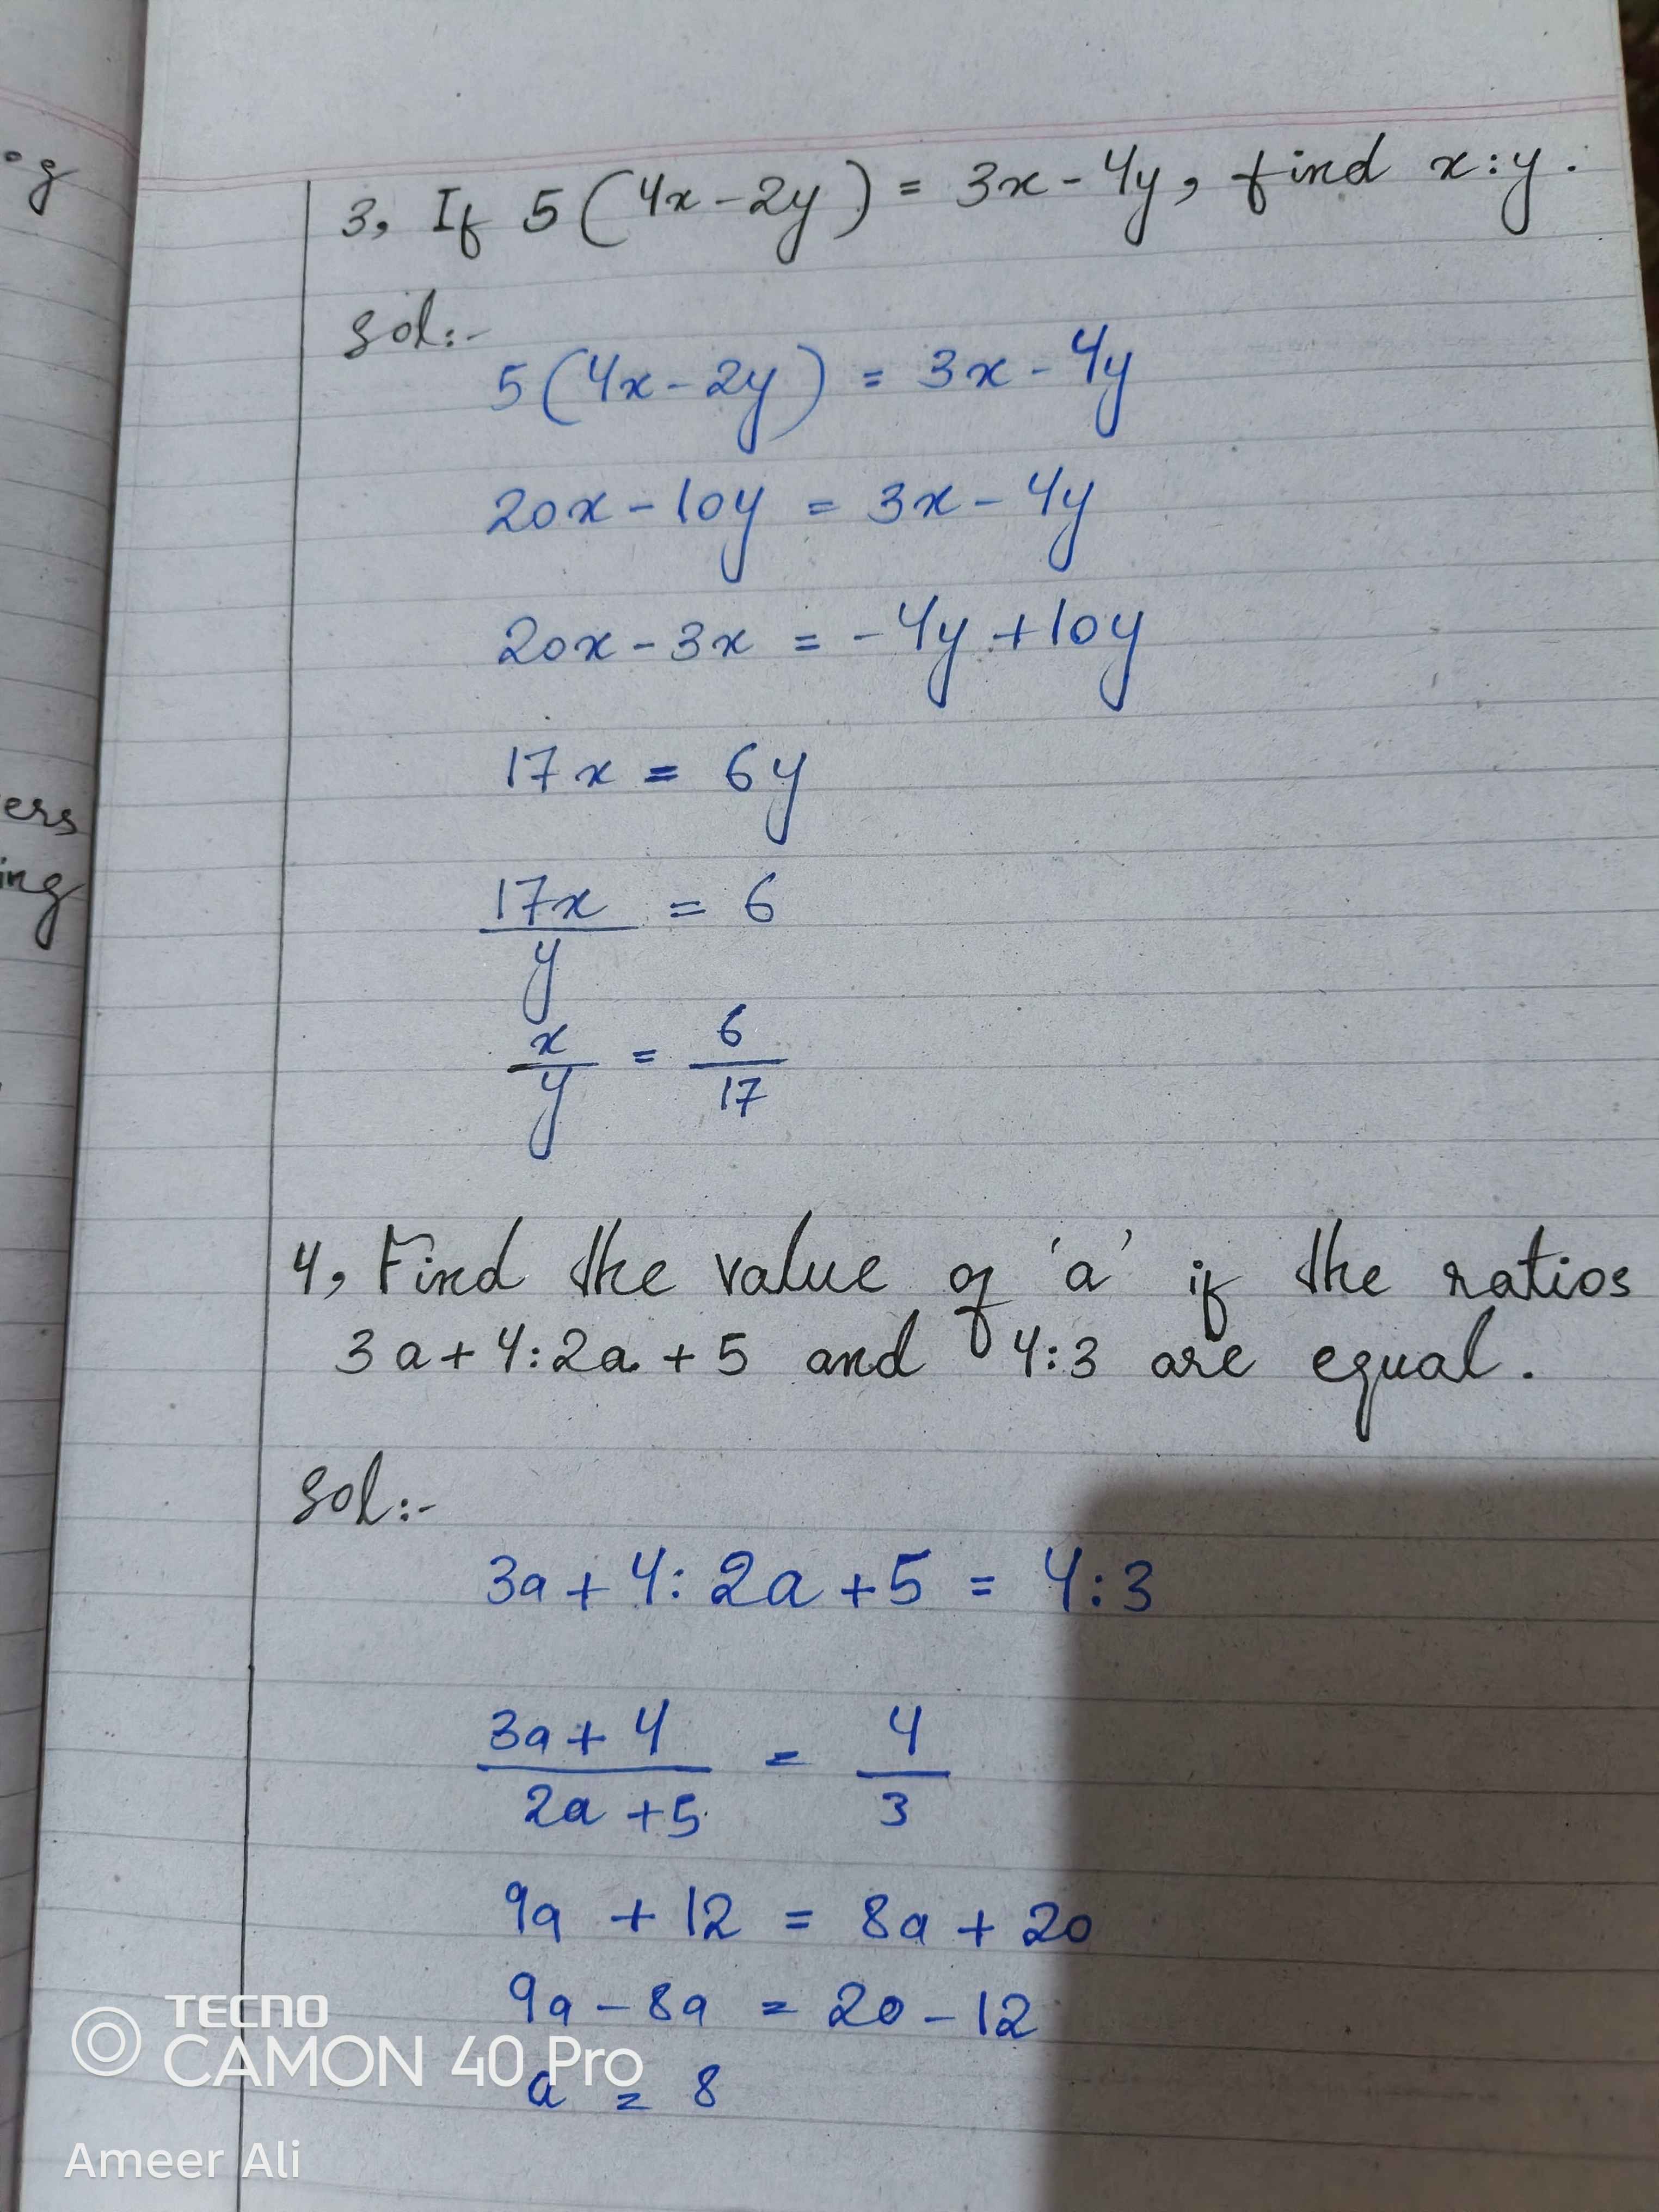 g
3, If 5(4x-2y) = 3x-4y, find x:y.
Sol:-
5(4x-2y) = 3x-4y
20x-10y = 3x-4y
20x-3x = -4y+10y
17x = 6y
ers
17x/y = 6
ing
x/y = 6/17
4, Find the value of 'a' if the ratios
3a+4:2a+5 and 4:3 are equal.
Sol:-
3a+4:2a+5 = 4:3
3a+4/2a+5 = 4/3
9a+12 = 8a+20
9a-8a = 20-12
a = 8
TECNO
CAMON 40 Pro
Ameer Ali